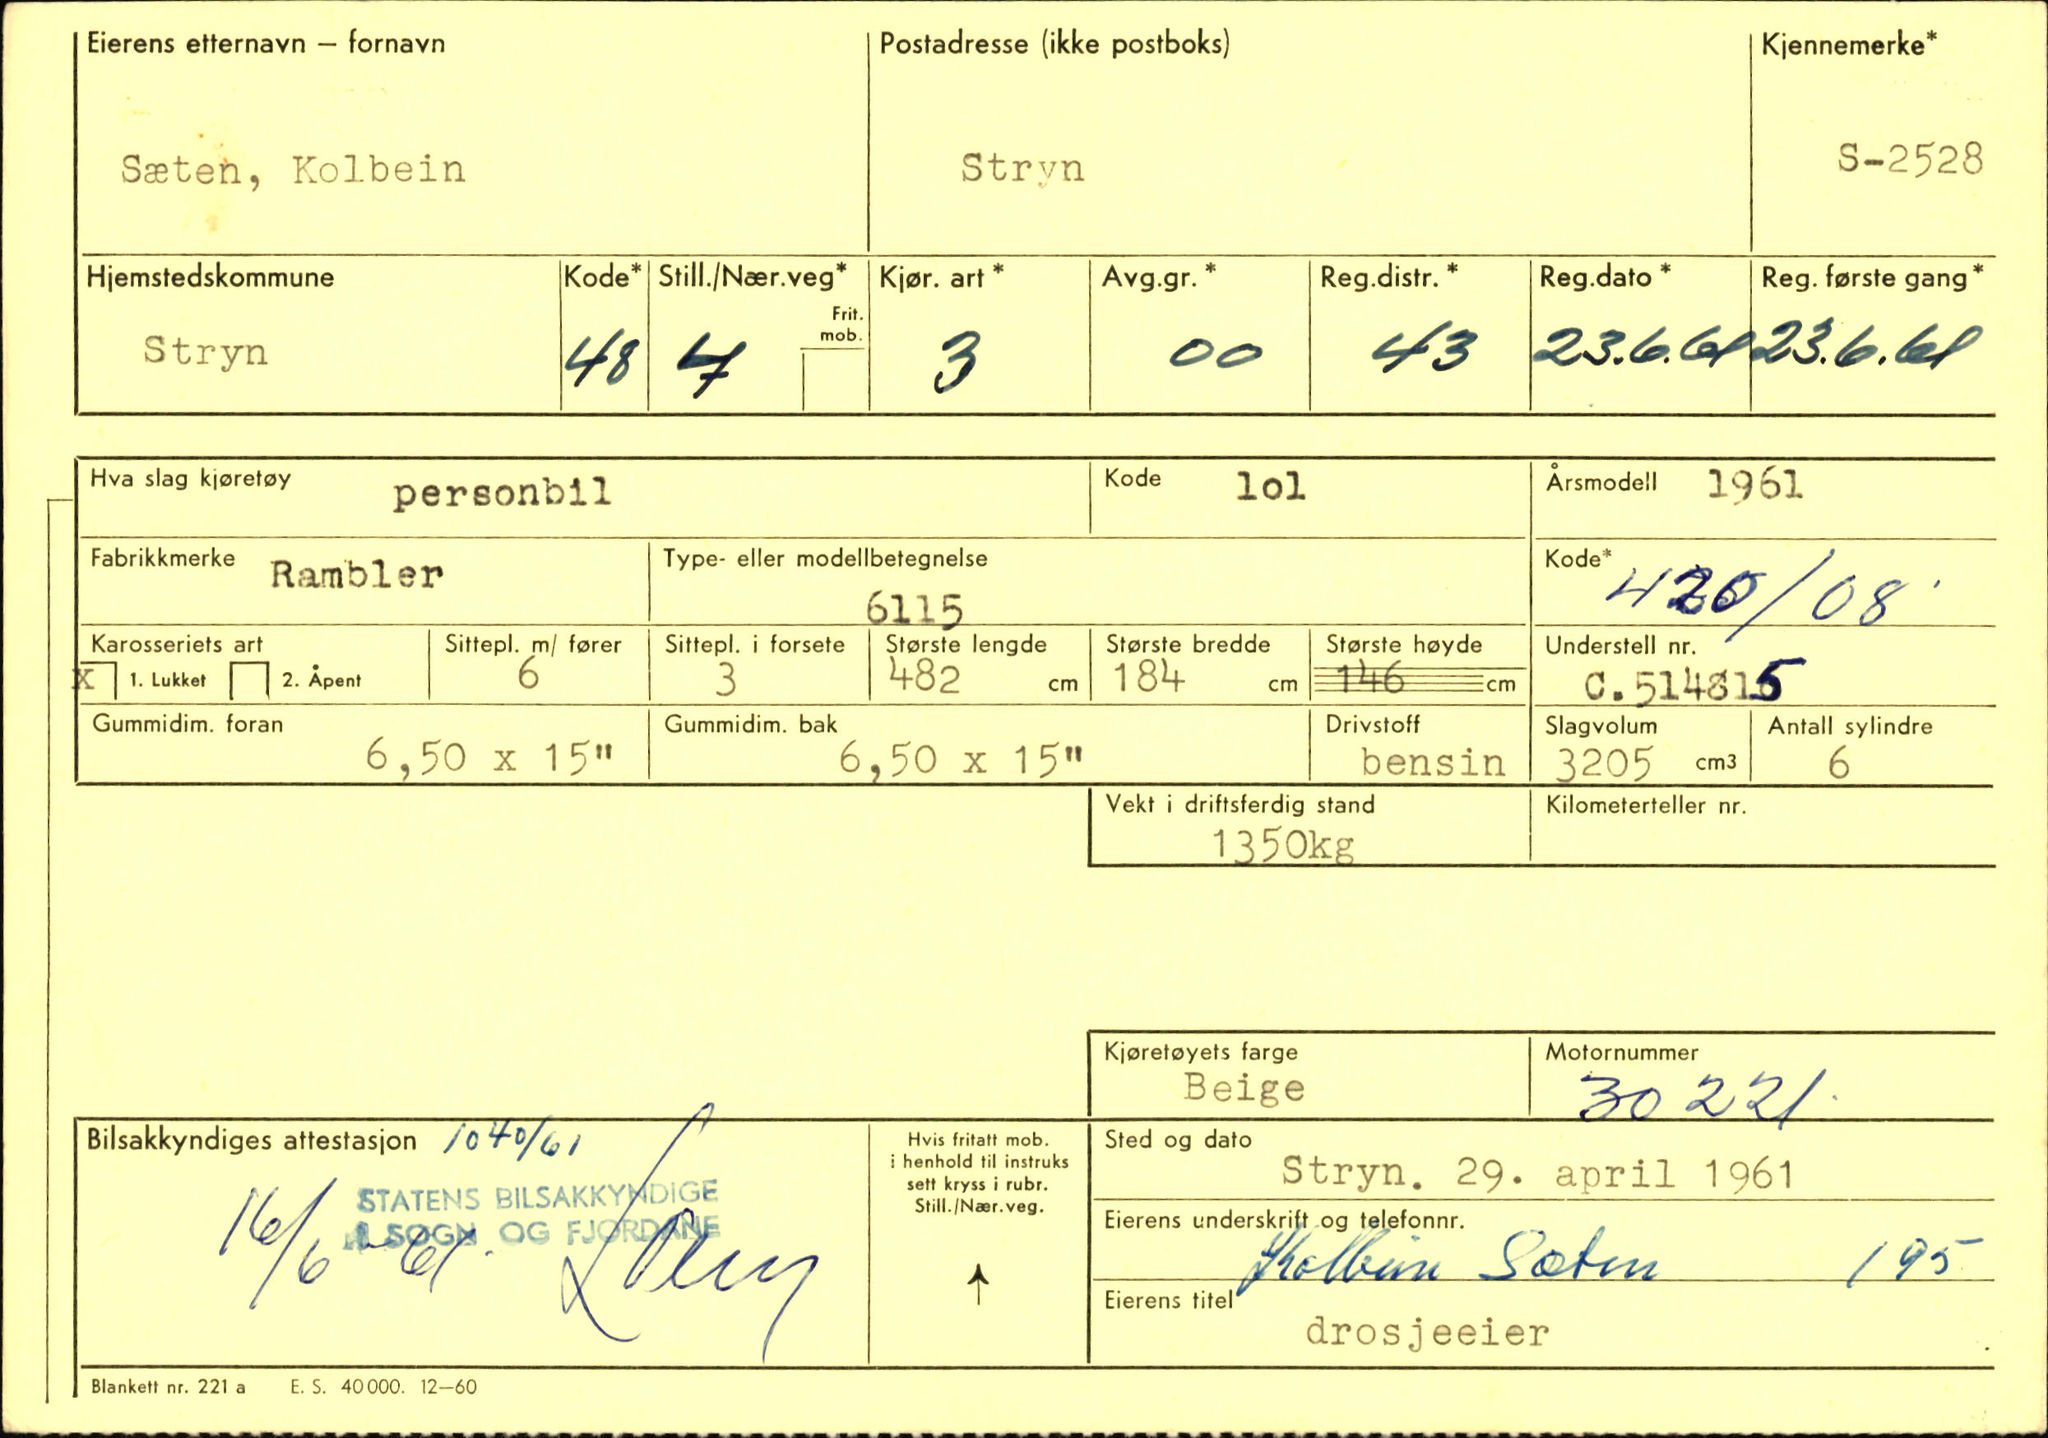 Eierens etternavn – fornavn Postadresse (ikke postboks) Kjennemerke*
Sæten, Kolbein Stryn S-2528
Hjemstedskommune Kode* Still./Nær.veg* Kjør. art* Avg.gr.* Reg.distr.* Reg.dato* Reg. første gang*
Frit.
mob.
Stryn 48 7 3 00 43 23.6.61 23.6.61
Hva slag kjøretøy personbil Kode lol Årsmodell 1961
Fabrikkmerke Rambler Type- eller modellbetegnelse Kode*
6115 420/08
Karosseriets art Sittepl. m/ fører Sittepl. i forsete Største lengde Største bredde Største høyde Understell nr.
x 1. Lukket 2. Åpent 6 3 482 cm 184 cm 146 cm C.514815
Gummidim. foran Gummidim. bak Drivstoff Slagvolum Antall sylindre
6,50 x 15" 6,50 x 15" bensin 3205 cm3 6
Vekt i driftsferdig stand Kilometerteller nr.
1350kg
Kjøretøyets farge Motornummer
Beige 30221
Bilsakkyndiges attestasjon 1040/61
STATENS BILSAKKYNDIGE
I SOGN OG FJORDANE
16/6-61.
Hvis fritatt mob.
i henhold til instruks
sett kryss i rubr.
Still./Nær.veg.
↑
Sted og dato
Stryn. 29. april 1961
Eierens underskrift og telefonnr.
Kolbein Sæten 195
Eierens titel
drosjeeier
Blankett nr. 221 a E. S. 40 000. 12–60